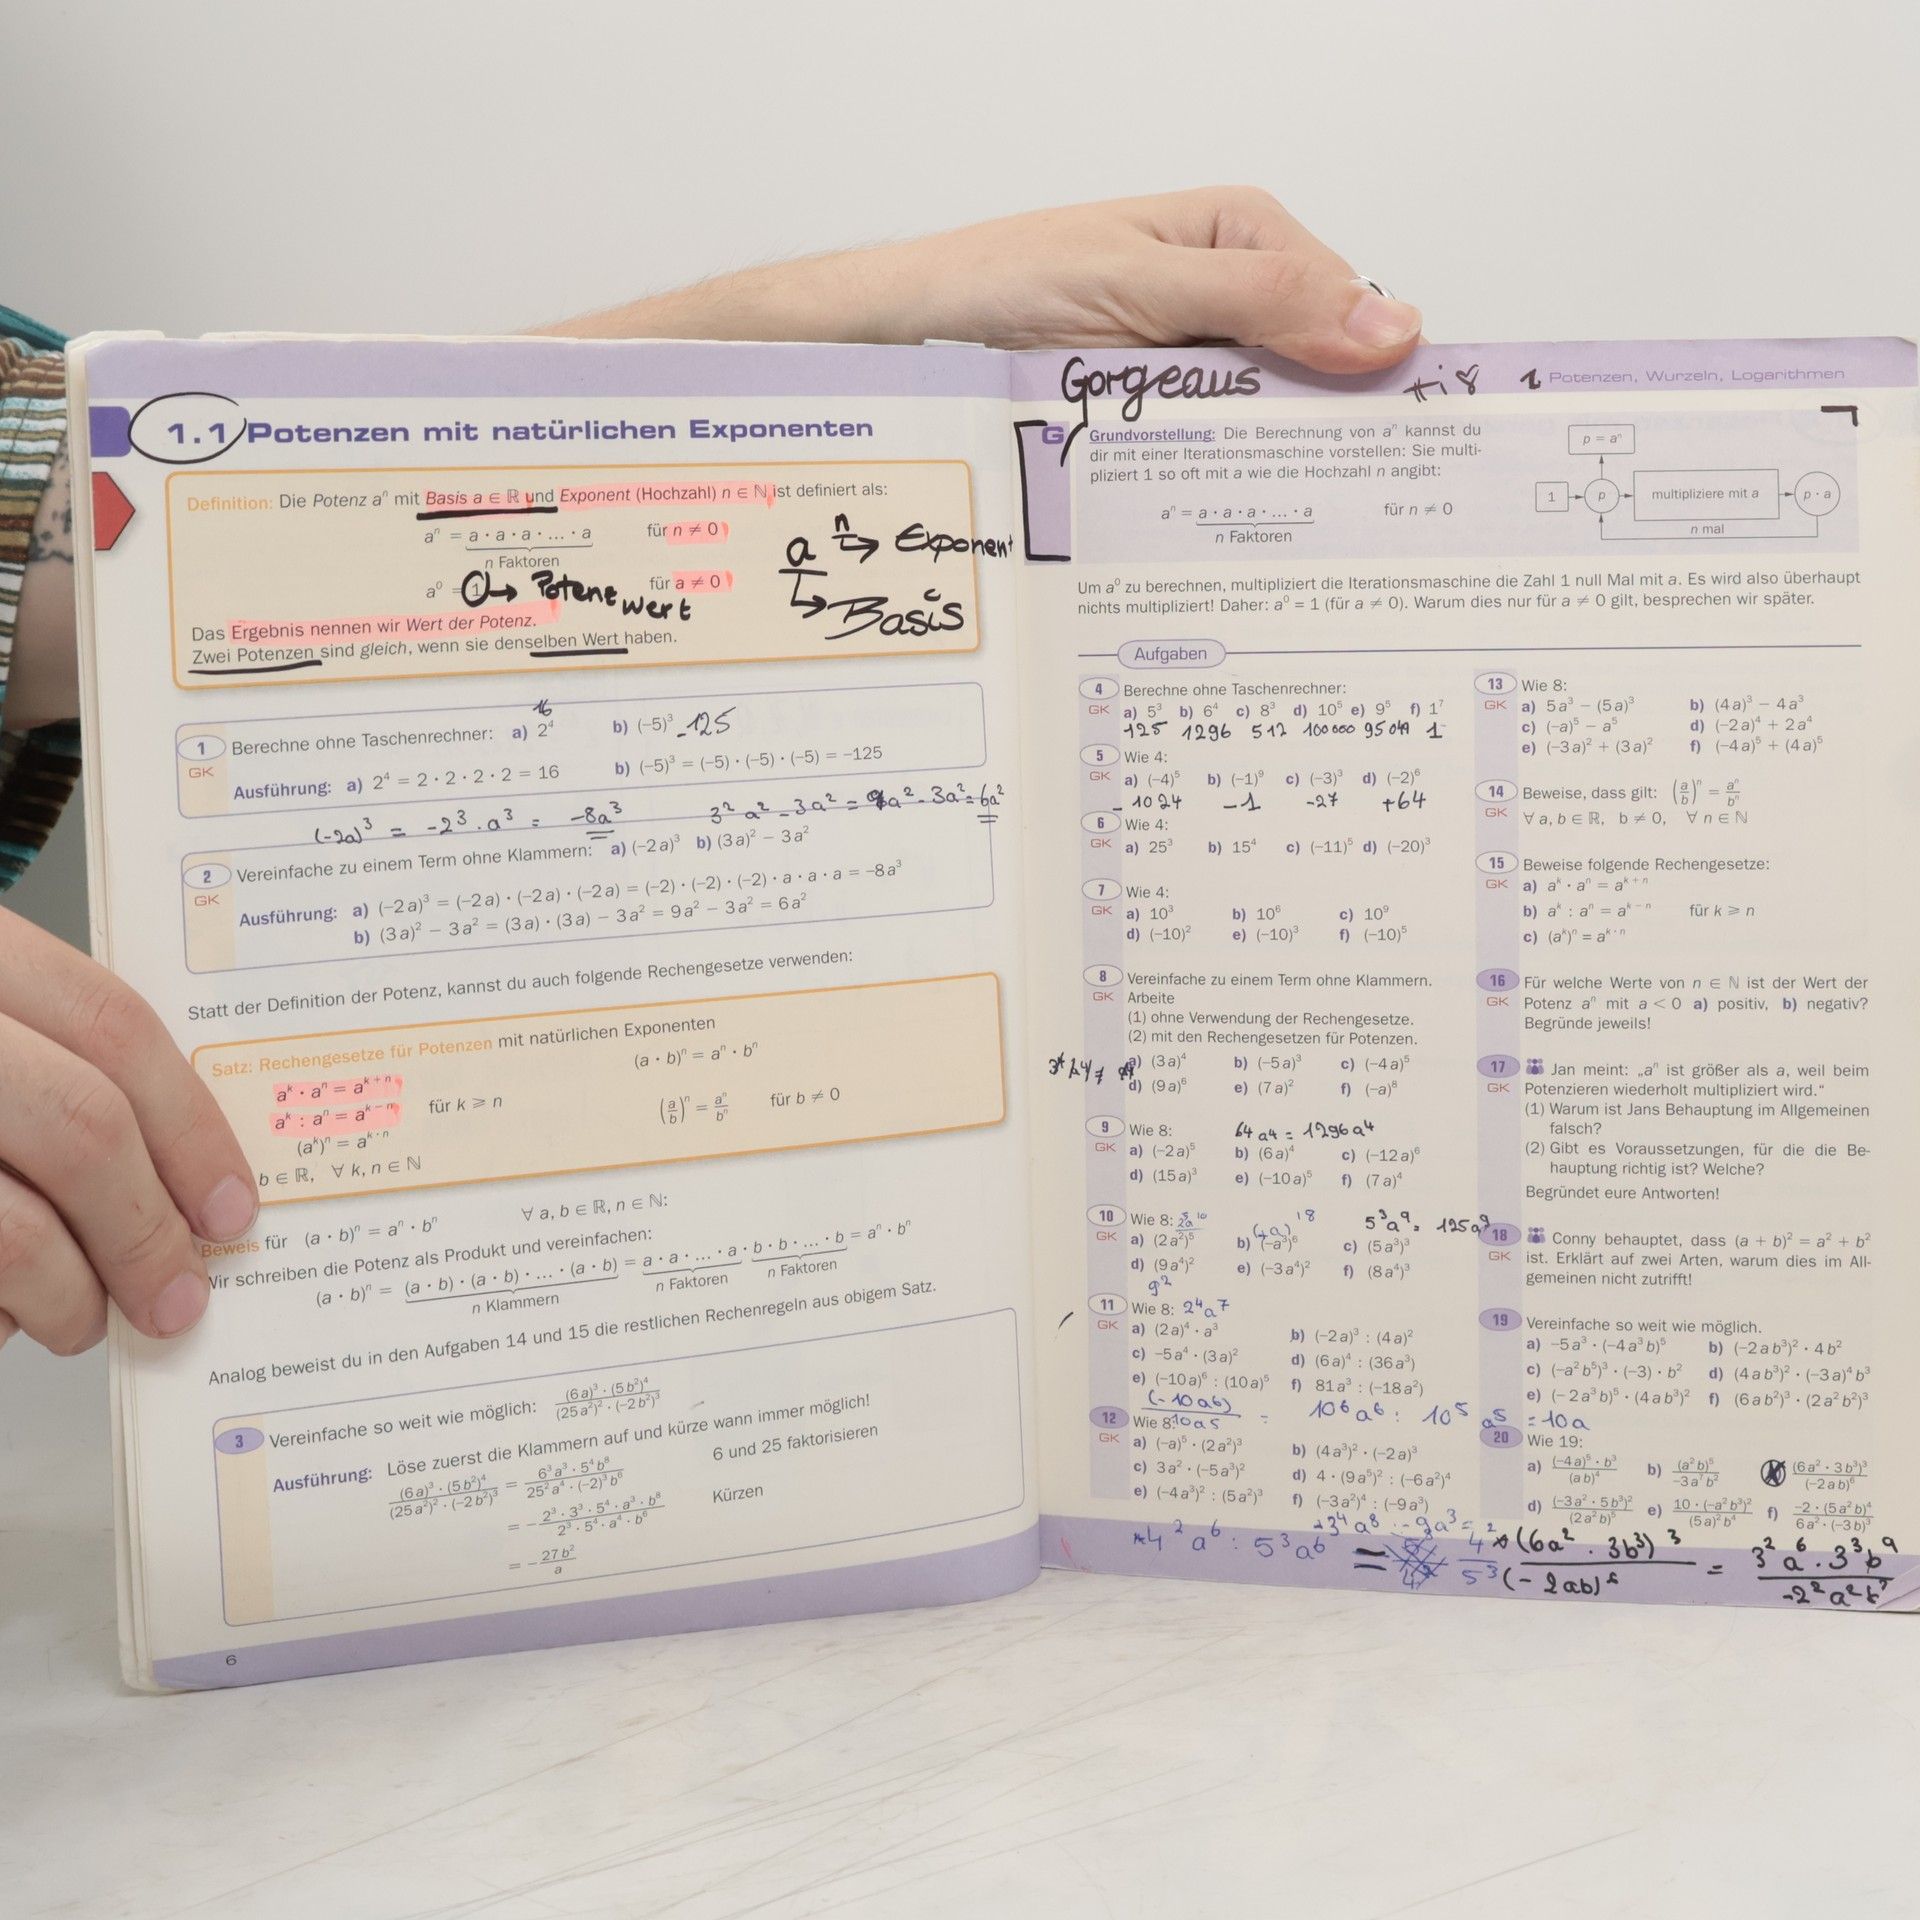 1.1 Potenzen mit natürlichen Exponenten
Definition: Die Potenz aⁿ mit Basis a ∈ ℝ und Exponent (Hochzahl) n ∈ ℕ ist definiert als:
aⁿ = a · a · a · ... · a für n ≠ 0
n Faktoren
a⁰ = 1 → Potenz wert für a ≠ 0
a n → Exponent
→ Basis
Das Ergebnis nennen wir Wert der Potenz.
Zwei Potenzen sind gleich, wenn sie denselben Wert haben.
16
1 Berechne ohne Taschenrechner: a) 2⁴ b) (−5)³ -125
GK
Ausführung: a) 2⁴ = 2 · 2 · 2 · 2 = 16 b) (−5)³ = (−5) · (−5) · (−5) = −125
(-2a)³ = -2³ · a³ = -8a³ 3² a² - 3a² = 9a² - 3a² = 6a²
2 Vereinfache zu einem Term ohne Klammern: a) (−2a)³ b) (3a)² − 3a²
GK
Ausführung: a) (−2a)³ = (−2a) · (−2a) · (−2a) = (−2) · (−2) · (−2) · a · a · a = −8a³
b) (3a)² − 3a² = (3a) · (3a) − 3a² = 9a² − 3a² = 6a²
Statt der Definition der Potenz, kannst du auch folgende Rechengesetze verwenden:
Satz: Rechengesetze für Potenzen mit natürlichen Exponenten
aᵏ · aⁿ = aᵏ⁺ⁿ (a · b)ⁿ = aⁿ · bⁿ
aᵏ : aⁿ = aᵏ⁻ⁿ für k ≥ n (a/b)ⁿ = aⁿ/bⁿ für b ≠ 0
(aᵏ)ⁿ = a^(k·n)
b ∈ ℝ, ∀ k, n ∈ ℕ
Beweis für (a · b)ⁿ = aⁿ · bⁿ ∀ a, b ∈ ℝ, n ∈ ℕ:
Wir schreiben die Potenz als Produkt und vereinfachen:
(a · b)ⁿ = (a · b) · (a · b) · ... · (a · b) = a · a · ... · a · b · b · ... · b = aⁿ · bⁿ
n Klammern n Faktoren n Faktoren
Analog beweist du in den Aufgaben 14 und 15 die restlichen Rechenregeln aus obigem Satz.
3 Vereinfache so weit wie möglich: (6a)³ · (5b²)⁴ / (25a²)² · (−2b²)³
Ausführung: Löse zuerst die Klammern auf und kürze wann immer möglich!
(6a)³ · (5b²)⁴ / (25a²)² · (−2b²)³ = 6³a³ · 5⁴b⁸ / 25²a⁴ · (−2)³b⁶ 6 und 25 faktorisieren
= − 2³ · 3³ · 5⁴ · a³ · b⁸ / 2³ · 5⁴ · a⁴ · b⁶ Kürzen
= − 27b²/a
6
Gorgeaus
1 Potenzen, Wurzeln, Logarithmen
G Grundvorstellung: Die Berechnung von aⁿ kannst du
dir mit einer Iterationsmaschine vorstellen: Sie multi-
pliziert 1 so oft mit a wie die Hochzahl n angibt:
aⁿ = a · a · a · ... · a für n ≠ 0
n Faktoren
p = aⁿ
1 p multipliziere mit a p · a
n mal
Um a⁰ zu berechnen, multipliziert die Iterationsmaschine die Zahl 1 null Mal mit a. Es wird also überhaupt
nichts multipliziert! Daher: a⁰ = 1 (für a ≠ 0). Warum dies nur für a ≠ 0 gilt, besprechen wir später.
Aufgaben
4 Berechne ohne Taschenrechner:
GK a) 5³ b) 6⁴ c) 8³ d) 10⁵ e) 9⁵ f) 1⁷
125 1296 512 100000 95049 1
5 Wie 4:
GK a) (−4)⁵ b) (−1)⁹ c) (−3)³ d) (−2)⁶
-1024 -1 -27 +64
6 Wie 4:
GK a) 25³ b) 15⁴ c) (−11)⁵ d) (−20)³
7 Wie 4:
GK a) 10³ b) 10⁶ c) 10⁹
d) (−10)² e) (−10)³ f) (−10)⁵
8 Vereinfache zu einem Term ohne Klammern.
GK Arbeite
(1) ohne Verwendung der Rechengesetze.
(2) mit den Rechengesetzen für Potenzen.
a) (3a)⁴ b) (−5a)³ c) (−4a)⁵
d) (9a)⁶ e) (7a)² f) (−a)⁸
9 Wie 8: 64a4 = 1296a4
GK a) (−2a)⁵ b) (6a)⁴ c) (−12a)⁶
d) (15a)³ e) (−10a)⁵ f) (7a)⁴
10 Wie 8: 2⁵a¹⁰ (+a)¹⁸ 5³a⁹ = 125a⁹
GK a) (2a²)⁵ b) (−a³)⁶ c) (5a³)³
d) (9a⁴)² e) (−3a⁴)² f) (8a⁴)³
9²
11 Wie 8: 2⁴a⁷
GK a) (2a)⁴ · a³ b) (−2a)³ : (4a)²
c) −5a⁴ · (3a)² d) (6a)⁴ : (36a³)
e) (−10a)⁶ : (10a)⁵ f) 81a³ : (−18a²)
(-10a6) / 10a5 = 10⁶a⁶ : 10⁵ a⁵ = 10a
12 Wie 8:
GK a) (−a)⁵ · (2a²)³ b) (4a³)² · (−2a)³
c) 3a² · (−5a³)² d) 4 · (9a⁵)² : (−6a²)⁴
e) (−4a³)² : (5a²)³ f) (−3a²)⁴ : (−9a³)
+3⁴a⁸ : -9a³ =
-4²a⁶ : 5³a⁶ = 4²/5³
13 Wie 8:
GK a) 5a³ − (5a)³ b) (4a)³ − 4a³
c) (−a)⁵ − a⁵ d) (−2a)⁴ + 2a⁴
e) (−3a)² + (3a)² f) (−4a)⁵ + (4a)⁵
14 Beweise, dass gilt: (a/b)ⁿ = aⁿ/bⁿ
GK ∀ a, b ∈ ℝ, b ≠ 0, ∀ n ∈ ℕ
15 Beweise folgende Rechengesetze:
GK a) aᵏ · aⁿ = aᵏ⁺ⁿ
b) aᵏ : aⁿ = aᵏ⁻ⁿ für k ≥ n
c) (aᵏ)ⁿ = a^(k·n)
16 Für welche Werte von n ∈ ℕ ist der Wert der
GK Potenz aⁿ mit a < 0 a) positiv, b) negativ?
Begründe jeweils!
17 Jan meint: „aⁿ ist größer als a, weil beim
GK Potenzieren wiederholt multipliziert wird.“
(1) Warum ist Jans Behauptung im Allgemeinen
falsch?
(2) Gibt es Voraussetzungen, für die die Be-
hauptung richtig ist? Welche?
Begründet eure Antworten!
18 Conny behauptet, dass (a + b)² = a² + b²
GK ist. Erklärt auf zwei Arten, warum dies im All-
gemeinen nicht zutrifft!
19 Vereinfache so weit wie möglich.
a) −5a³ · (−4a³b)⁵ b) (−2ab³)² · 4b²
c) (−a²b⁵)³ · (−3) · b² d) (4ab³)² · (−3a)⁴b³
e) (−2a³b)⁵ · (4ab³)² f) (6ab²)³ · (2a²b²)³
20 Wie 19:
a) (−4a)⁵ · b³ / (ab)⁴ b) (a²b)⁵ / −3a⁷b² (6a² · 3b³)³ / (−2ab)⁶
d) (−3a² · 5b³)² / (2a²b)⁵ e) 10 · (−a²b³)² / (5a)²b⁴ f) −2 · (5a²b)⁴ / 6a² · (−3b)³
(6a² · 3b³)³ / (-2ab)² = 3²a⁶ · 3³b⁹ / -2²a²b²